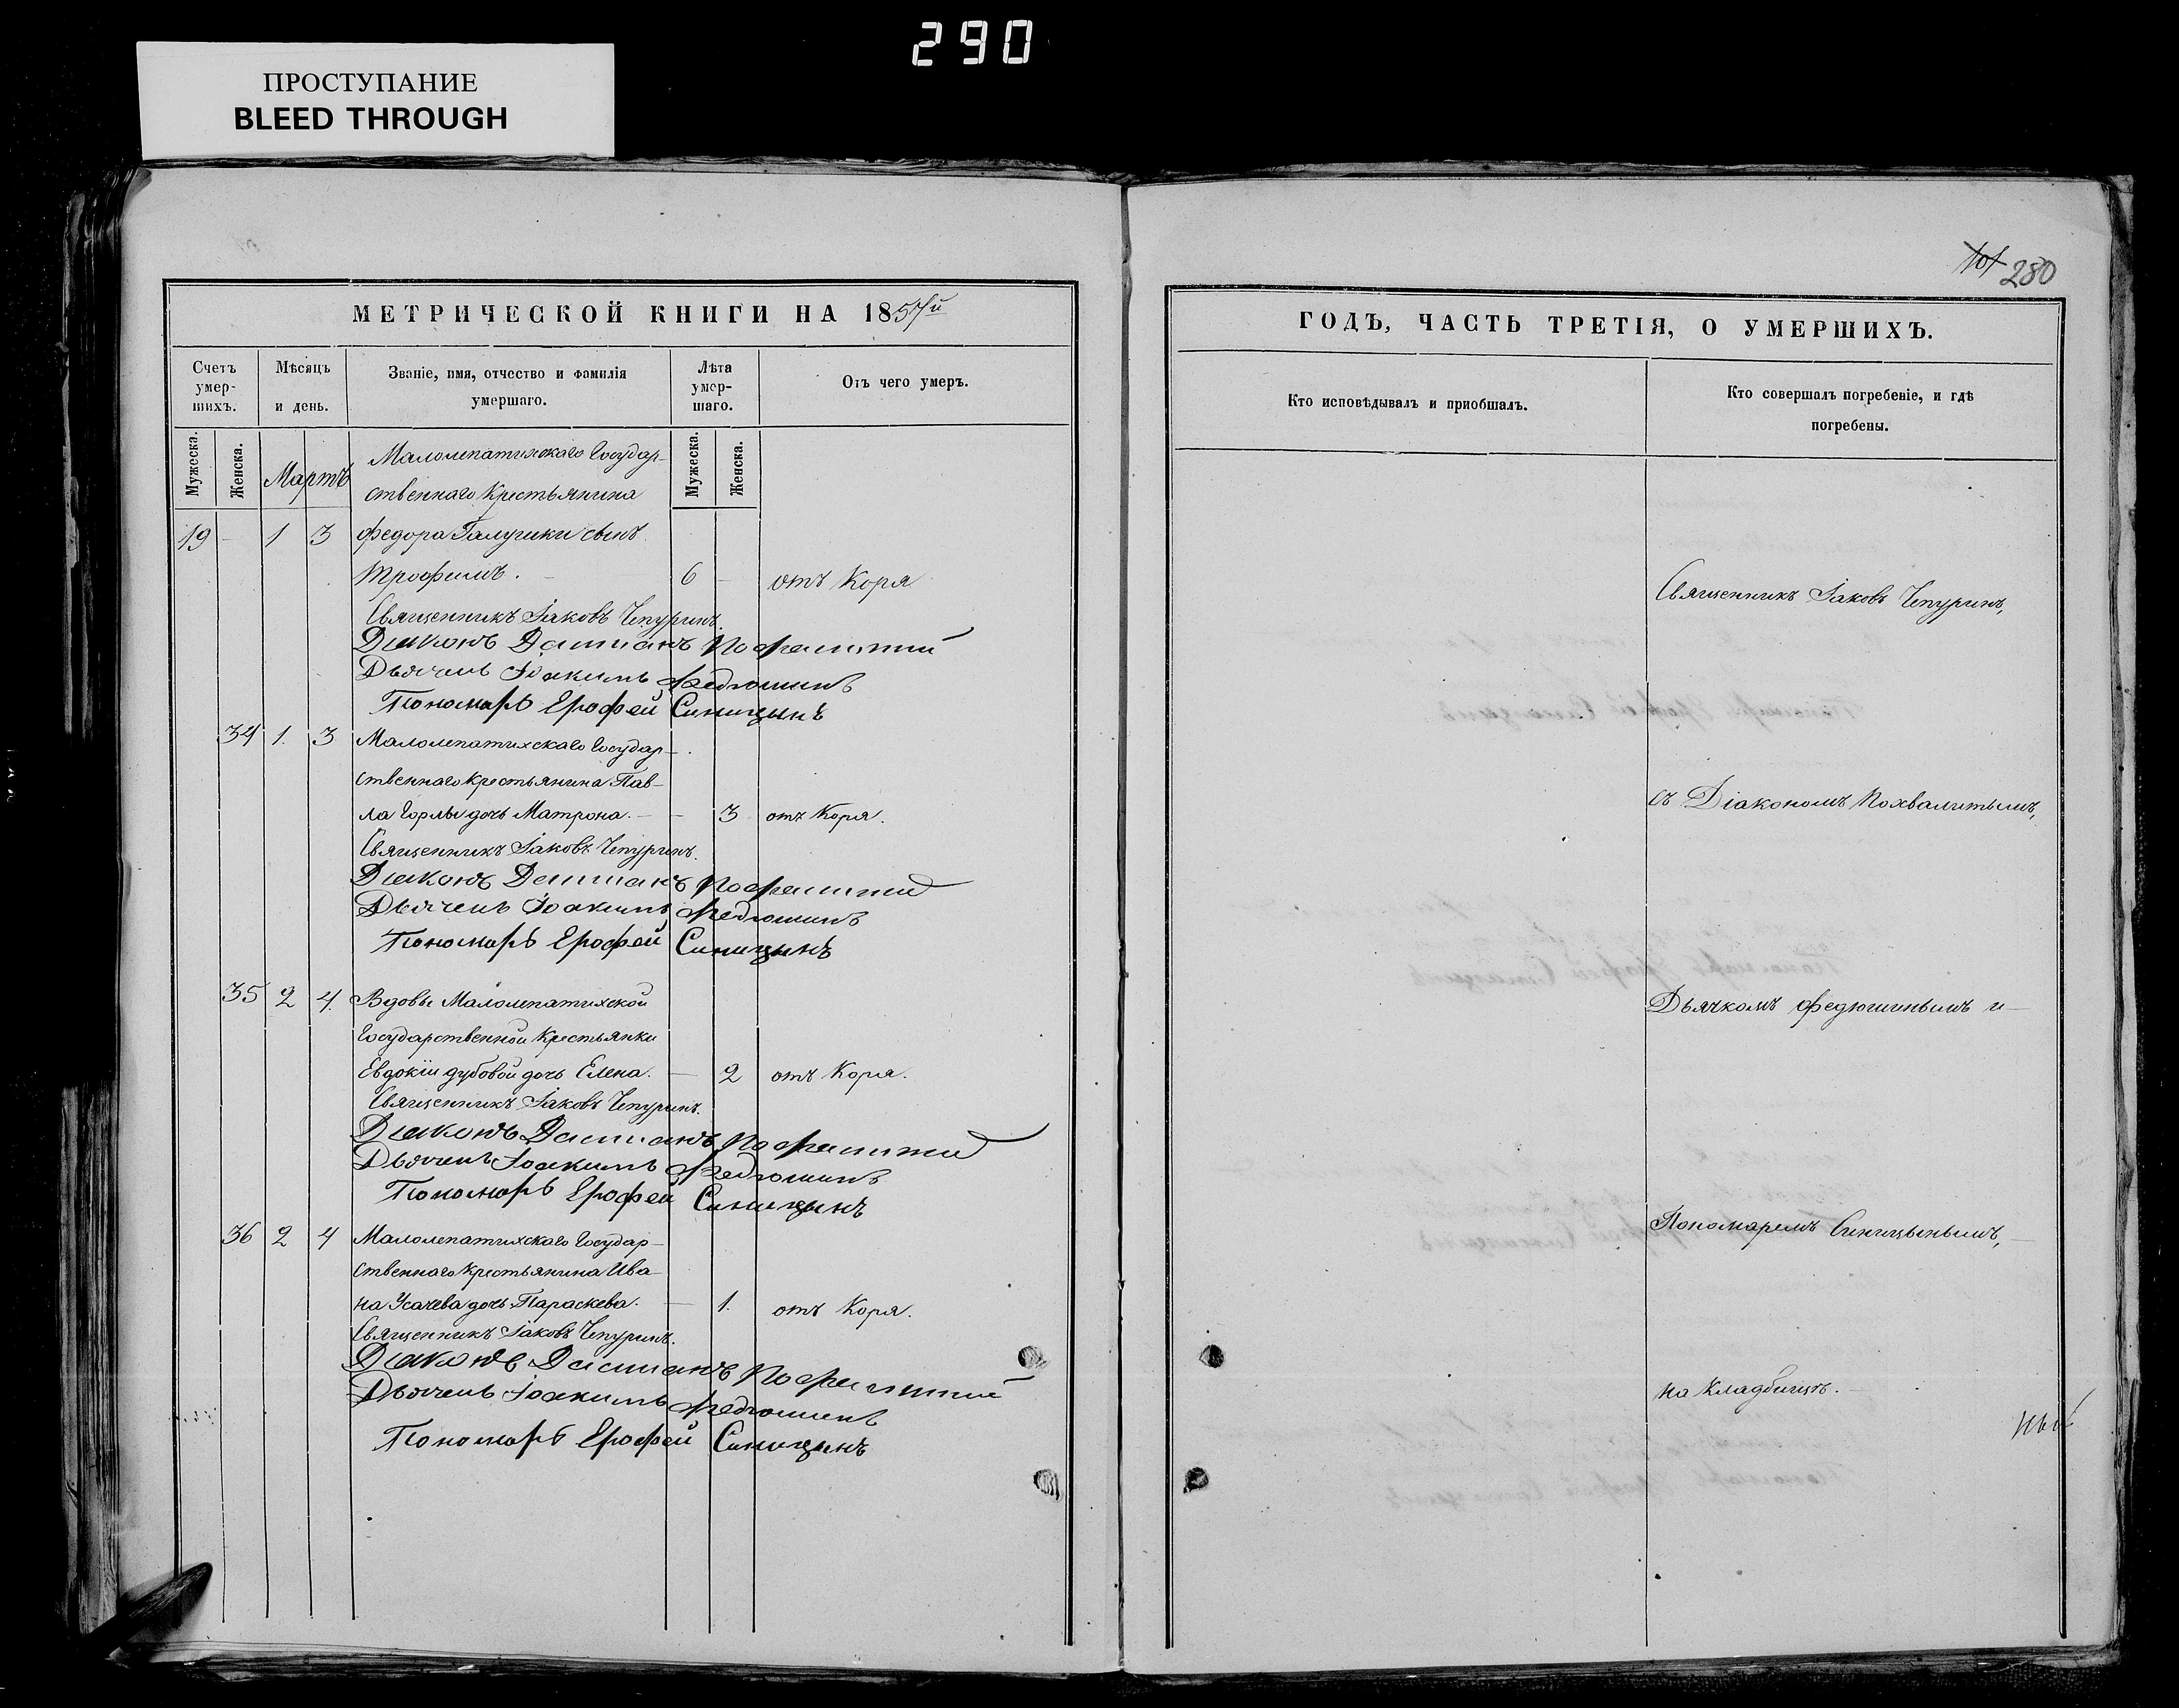 290
ПРОСТУПАНИЕ
BLEED THROUGH
МЕТРИЧЕСКОЙ КНИГИ НА 1857й
Счетъ умер-шихъ.
Мѣсяцъ и день.
Званіе, имя, отчество и фамилія умершаго.
Лѣта умер-шаго.
Отъ чего умеръ.
Мужеска.
Женска.
Мартъ
Мужеска.
Женска.
Малолепатихскаго Государ-
ственнаго Крестьянина
19 - 1 3 Федора Галушки сынъ
Трофимъ. - 6 - отъ Коря
Священникъ Іаковъ Чепуринъ.
Діаконъ Дамианъ Похвалитый
Дьячекъ Іоакимъ Федюшинъ
Пономарь Ерофей Синицынъ
34 1. 3 Малолепатихскаго Государ-
ственнаго крестьянина Пав-
ла Горлы дочь Матрона. - - 3 отъ Коря.
Священникъ Іаковъ Чепуринъ.
Діаконъ Дамианъ Похвалитый
Дьячекъ Іоакимъ Федюшинъ
Пономарь Ерофей Синицынъ
35 2 4. Вдовы Малолепатихской
Государственной Крестьянки
Евдокіи Дубовой дочь Елена. - 2 отъ Коря.
Священникъ Іаковъ Чепуринъ.
Діаконъ Дамианъ Похвалитый
Дьячекъ Іоакимъ Федюшинъ
Пономарь Ерофей Синицынъ
36 2 4 Малолепатихскаго Государ-
ственнаго крестьянина Ива-
на Усачева дочь Параскева. - 1. отъ Коря.
Священникъ Іаковъ Чепуринъ.
Діаконъ Дамианъ Похвалитый
Дьячекъ Іоакимъ Федюшинъ
Пономарь Ерофей Синицынъ
101 280
ГОДЪ, ЧАСТЬ ТРЕТІЯ, О УМЕРШИХЪ.
Кто исповѣдывалъ и приобшалъ.
Кто совершалъ погребеніе, и гдѣ
погребены.
Священникъ Іаковъ Чепуринъ,
съ Діакономъ Похвалитымъ,
Дьячкомъ Федюшинымъ и-
Пономаремъ Синицынымъ,-
на кладбищѣ.-